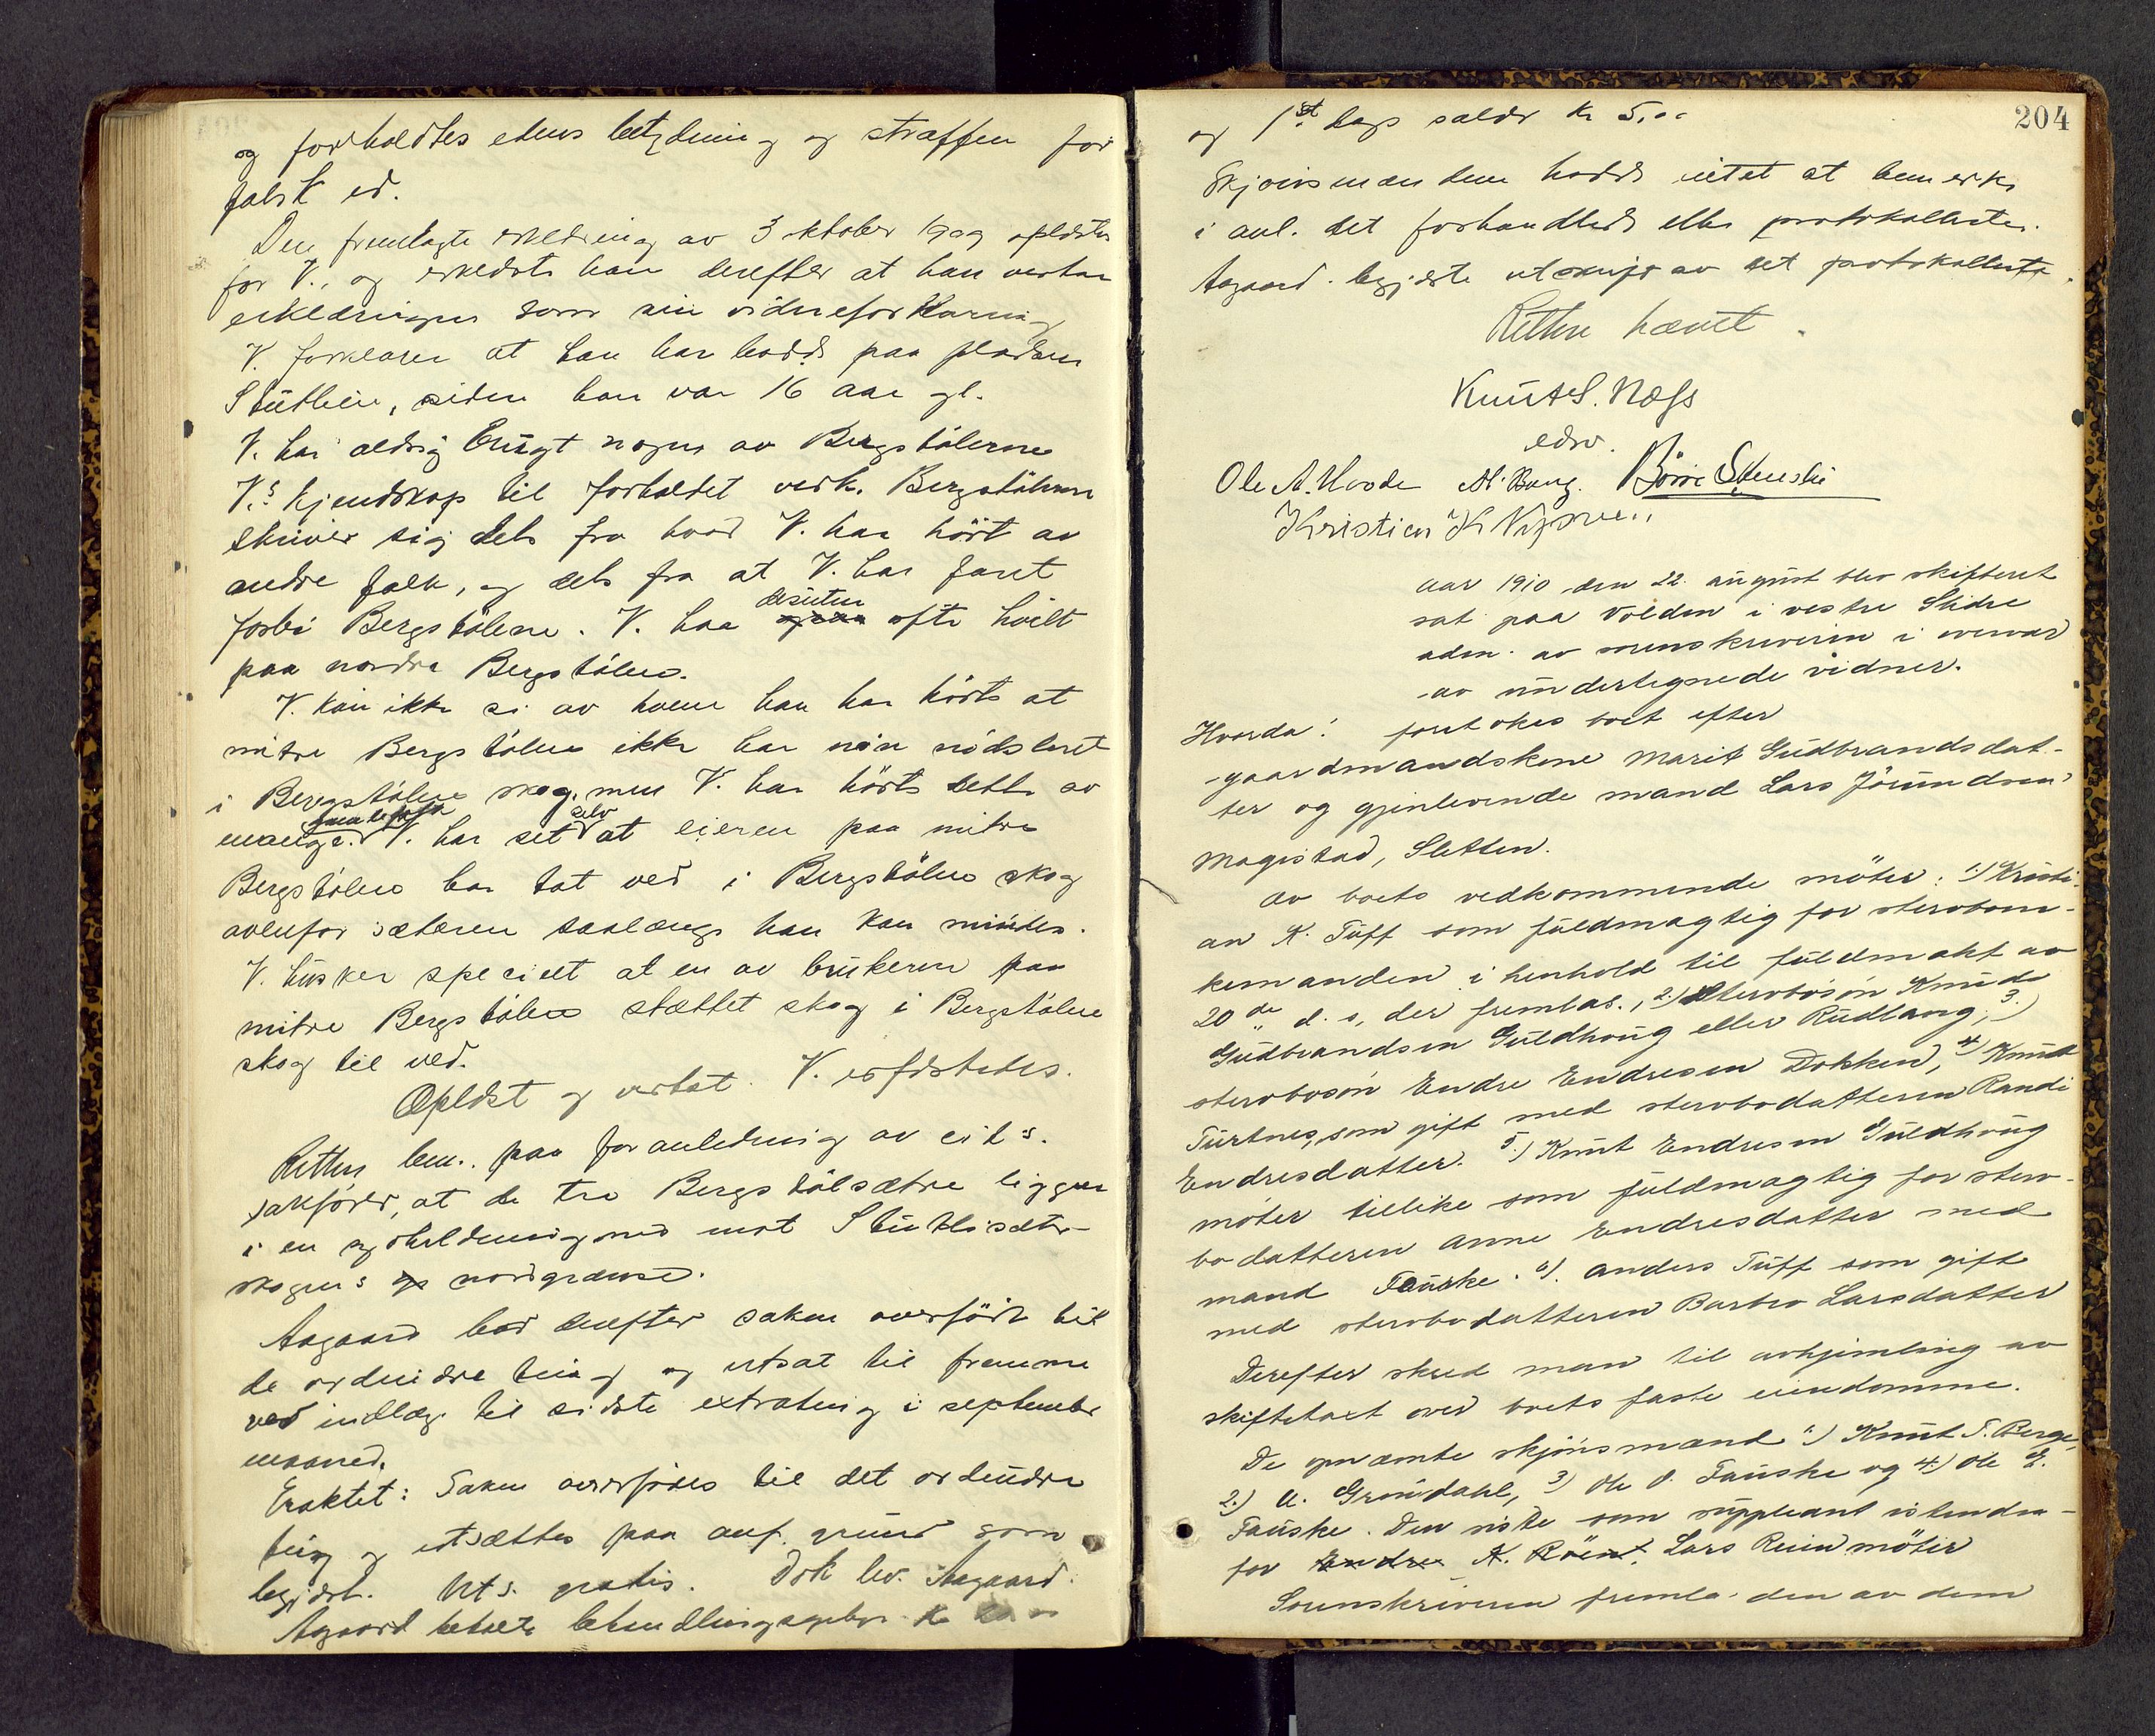 og forholdtes edens betydning og straffen for
falsk ed.
Den fremlagte erklæring av 3 ktober 1909 oplæstes
for V., og erklærte han derefter at han vedtar
erklæringen som sin vidneforklaring
V. forklarer at han har bodd paa pladsen
Stutlien, siden han var 16 aar gl.
V. har aldrig brugt nogen av Bergstölerne
V.s kjendskap til forholdet vedk. Bergstölerne
skriver sig dels fra hvad V. har hört av
andre folk, og dels fra at V. har faret
forbi Bergstölene. V. har desuten ofte hvilt
paa nordre Bergstölen.
V. kan ikke si av hvem han har hört at
mitre Bergstölen ikke har nón nódsleret
i Bergstölens skog, men V. har hört dette av
mange gamle folk. V. har set selv at eieren paa mitre
Bergstölen har tat ved i Bergstölens skog
ovenfor sæteren saalænge han kan mindes.
V. husker specielt at en av brukerne paa
mitre Bergstölen slættet skog i Bergstölens
skog til ved.
Oplæst og vedtat. V. erfdstedes.
Retten bem. paa foranledning av cit.s
sakförer, at de tre Bergstölsætre ligger
i en ned mot Stutlisæter-
skogens nordgrænse.
Aagaard bad derefter saken overfört til
de ordinære ting og utsat til fremme
ved indlæg til sidste extrating i september
maaned.
Eraktet: Saken overföres til det ordinære
ting og utsættes paa anf. grund som
begjært. Uts. gratis. Dok lev. Aagaard.
Agaard betalte behandlingsgebyr kr
204
og 1st dags salær kr 5,00
Skjönsmændene hadde intet at bemerke
i anl. det forhandlede eller protokollerte.
Aagaard begjærte utskrift av det protokollerte.
Retten hævet.
Knut S. Næss
edsv.
Ole A. Hovde M. Bang. Börre Stenshi
Kristian K
Aar 1910 den 22. august blev skifteret
sat paa Volden i vestre Slidre
adm. av sorenskriveren i overvær
av undertegnede vidner.
Hvorda: foretokes boet efter
gaardmandskone Marit Gudbrandsdat-
ter og gjenlevende mand Lars Jörundsen
Magistad, Sletten.
Av boets vedkommende möter: 1) Kristi-
an K. Tuff som fuldmægtig for stervboen-
kemanden i henhold til fuldmakt av
20de d. s. der fremlas., 2) Stervbosön Knud
Gudbrandsen Guldhaug eller Rudlang, 3)
stervbosön Endre Endresen Dokken, 4) Knut
Turtnes, som gift med stervbodatteren Randi
Endresdatter. 5) Knut Endresen Guldhaug
möter tillike som fuldmægtig for sterv-
bodatteren Anne Endresdatter med
mand Fauske. 6) Anders Tuff som gift
med stervbodatteren Barbro Larsdatter
Derefter skred man til avhjemling av
skiftetaxt over boets faste eiendomme.
De opnævnte skjönsmænd 1) Knut T. Berge,
2) A. Gröndahl, 3) Ole O. Fauske og 4) Ole E.
Fauske. Den siste som suppleant istenden-
for Endre K. Röen. Lars Reiin möter
Sorenskriveren fremla den av dem